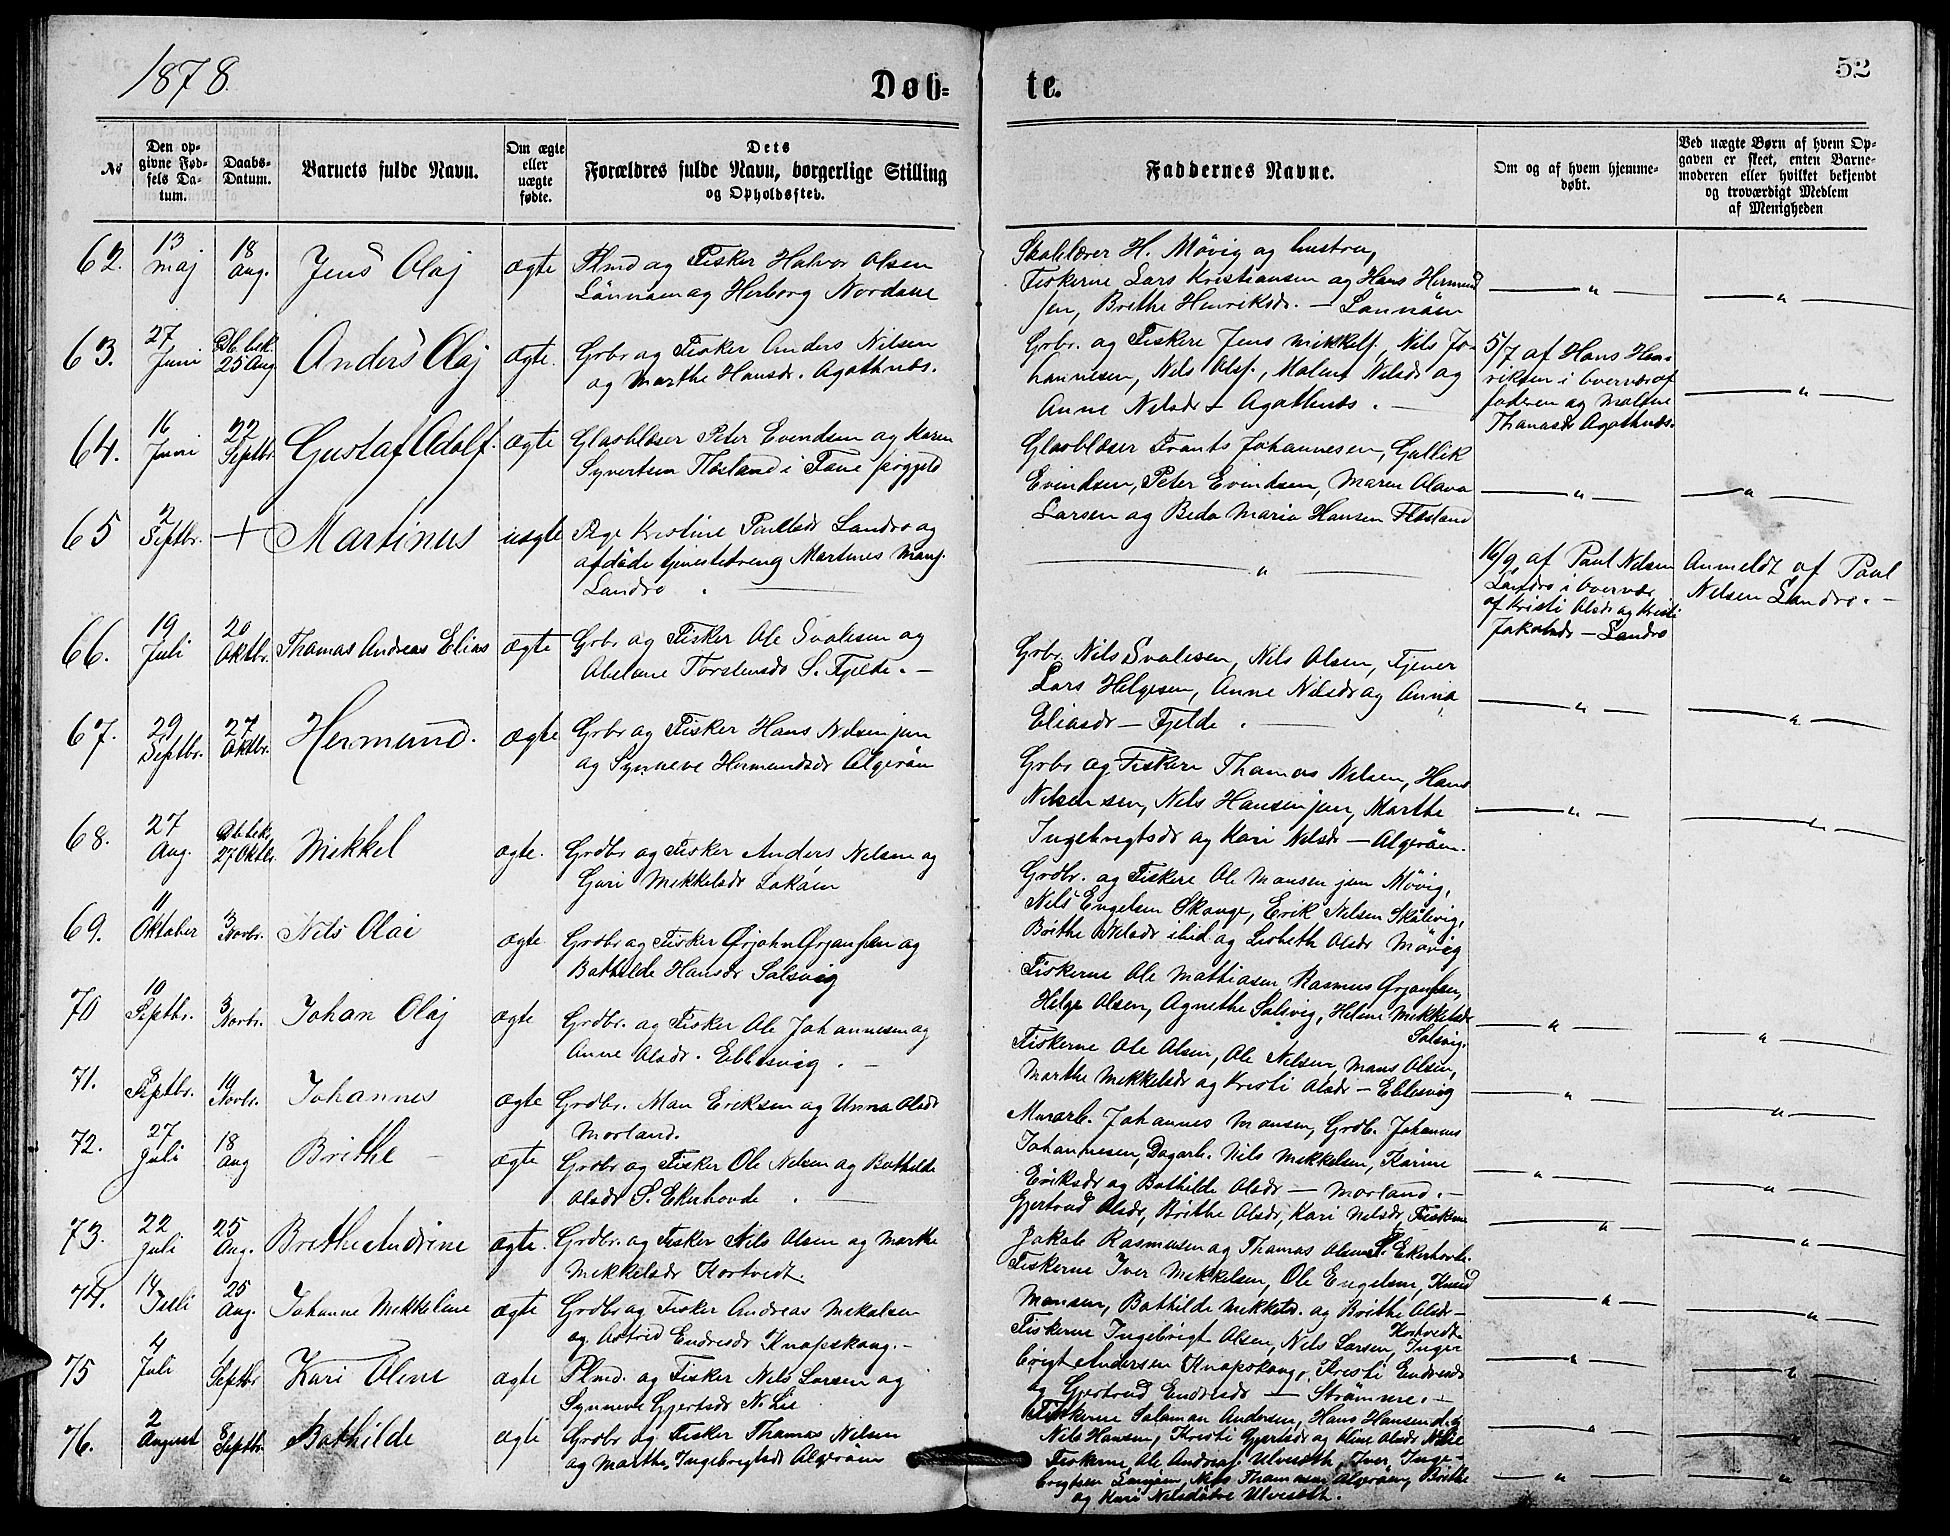 1878.
Døb=
te.
52
No
Den op-
givne Fød-
sels Da-
tum.
Daabs-
Datum.
Barnets fulde Navn.
Om ægte
eller
uægte
fødte.
Dets
Forældres fulde Navn, borgerlige Stilling
og Opholdssted.
Faddernes Navne.
Om og af hvem hjemme-
døbt.
Ved uægte Børn af hvem Op-
gaven er skeet, enten Barne-
moderen eller hvilket bekjendt
og troværdigt Medlem
af Menigheden
62. 13 Maj 18 Aug. Jens Olaj ægte
Plmd og Fisker Halvor Olsen
Lönnöen og Herborg Nordane
Skolelærer H. Mövig og hustru,
Fiskerne Lars Kristiansen og Hans Hermund
sen, Brithe Henriksdr. — Lönnöen
63. 27 Juni 25 Aug Anders Olaj ægte.
Grbr og Fisker Anders Nilsen
og Marthe Hansdr. Agothnes.
Grbr. og Fiskere Jens Mikkels., Nils Jo-
hannesen, Nils Ols., Malene Nilsdr og
Anne Nilsdr — Agothnes. —
5/7 af Hans Hen-
riksen i Overvær af
faderen og Malene
Thomasdr Agothnes.
64. 16 Juni 22 Septbr. Gustaf Adolf. ægte
Glasblæser Peter Evendsen og Karen
Syvertsen Flæsland i Fane prgjeld
Glasblæser Frants Johannesen, Gullik
Evindsen, Peter Evindsen, Maren Olava
Larsen og Beda Maria Hansen Flesland
65 2 Septbr. + Martinus uægte
Pige Kristine Poulsdr Landro og
afdöde tjenestedreng Martines Mons.
Landro.
16/9 af Paul Nilsen
Landro i Overvær
af Kristi Olsdr og Kristi
Jakobsdr — Landro
Anmeldt af Paul
Nilsen Landro. —
66. 19 Juli 20 Oktbr. Thomas Andreas Elias ægte
Grbr og Fisker Ole Svalesen og
Abelone Torstensdr S. Fjelde. —
Grbr. Nils Svalesen, Nils Olsen, Tjener
Lars Helgesen, Anne Nilsdr og Anna
Eliasdr — Fjelde.
67. 29 Septbr. 27 Oktbr. Hermund. ægte
Grbr og Fisker Hans Nilsen jun
og Synneve Hermundsdr Algeröen
Grbr og Fiskere Thomas Nilsen, Hans
Nilsen sen, Nils Hansen jun, Marthe
Ingebrigtsdr og Kari Nilsdr — Algeröen.
68. 27 Aug. 27 Oktbr. Mikkel ægte.
Grdbr og Fisker Anders Nilsen og
Guri Mikkelsdr Lokøen
Grdbr. og Fiskere Ole Monsen jun Mövig,
Nils Engelsen Skouge, Erik Nilsen Skålevig,
Brithe Nilsdr ibid og Lisbeth Olsdr Mövig
69. 11 Oktober 3 Novbr. Nils Olai ægte
Grdbr og Fisker Ørjohn Ørjansen og
Bothilde Hansdr Solsvig
Fiskerne Ole Mathiasen, Rasmus Ørjansen,
Helge Olsen, Agnethe Solsvig, Helene Mikkelsdr
Solsvig.
70 10 Septbr. 3 Novbr. Johan Olaj ægte
Grdbr. og Fisker Ole Johannesen og
Anne Olsdr. Ebbesvig. —
Fiskerne Ole Olsen, Ole Nilsen, Mons Olsen,
Marthe Mikkelsdr og Kristi Olsdr — Ebbesvig
71. 8 Septbr. 10 Novbr. Johannes ægte
Grdbr. Mon Eriksen og Unna Olsdr
Morland.
Murarb. Johannes Monsen, Grdb. Johannes
Johannesen, Dagarb. Nils Mikkelsen, Karine
Eriksdr og Bothilde Olsdr — Morland. —
72. 27 Juli 18 Aug Brithe — ægte
Grdbr og Fisker Ole Nilsen og Bothilde
Olsdr S. Ekerhovde.
Gjertrud Olsdr, Brithe Olsdr, Kari Nilsdr, Fiskerne
Jakob Rasmusen og Thomas Olsen S. Ekerhovde.
73. 22 Juli 25 Aug. Brithe Andrine ægte.
Grdbr. og Fisker Nils Olsen og Marthe
Mikkelsdr Kortvedt.
Fiskerne Iver Mikkelsen, Ole Engelsen, Knud
Monsen, Bothilde Mikkelsd. og Brithe Olsdr —
Kortvedt
74. 14 Juli 25 Aug. Johanne Mikkeline ægte
Grdbr og Fisker Andreas Mikalsen
og Astrid Endresdr Knapskoug. —
Fiskerne Ingebrigt Olsen, Nils Larsen, Inge-
brigt Andersen Knapskoug, Kristi Endresdr
og Gjertrud Endresdr — Strömme. —
75 4 Juli 1 Septbr Kari Oline ægte
Plmd. og Fisker Nils Larsen og
Synneve Gjertsdr N. Lie
Fiskerne Salomon Andersen, Hans Hansen d.y.
Nils Hansen, Kristi Gjertsdr og Oline Olsdr N. Lie
76. 2 August 8 Septbr. Bothilde ægte
Grdbr og Fisker Thomas Nilsen
og Marthe Ingebrigtsdr Algeröen
Fiskerne Ole Andreas. Ulveseth, Iver Inge-
brigtsen Langöen, Nils Thommesen Algeröen, Brithe
og Kari Nilsdötre Ulveseth.